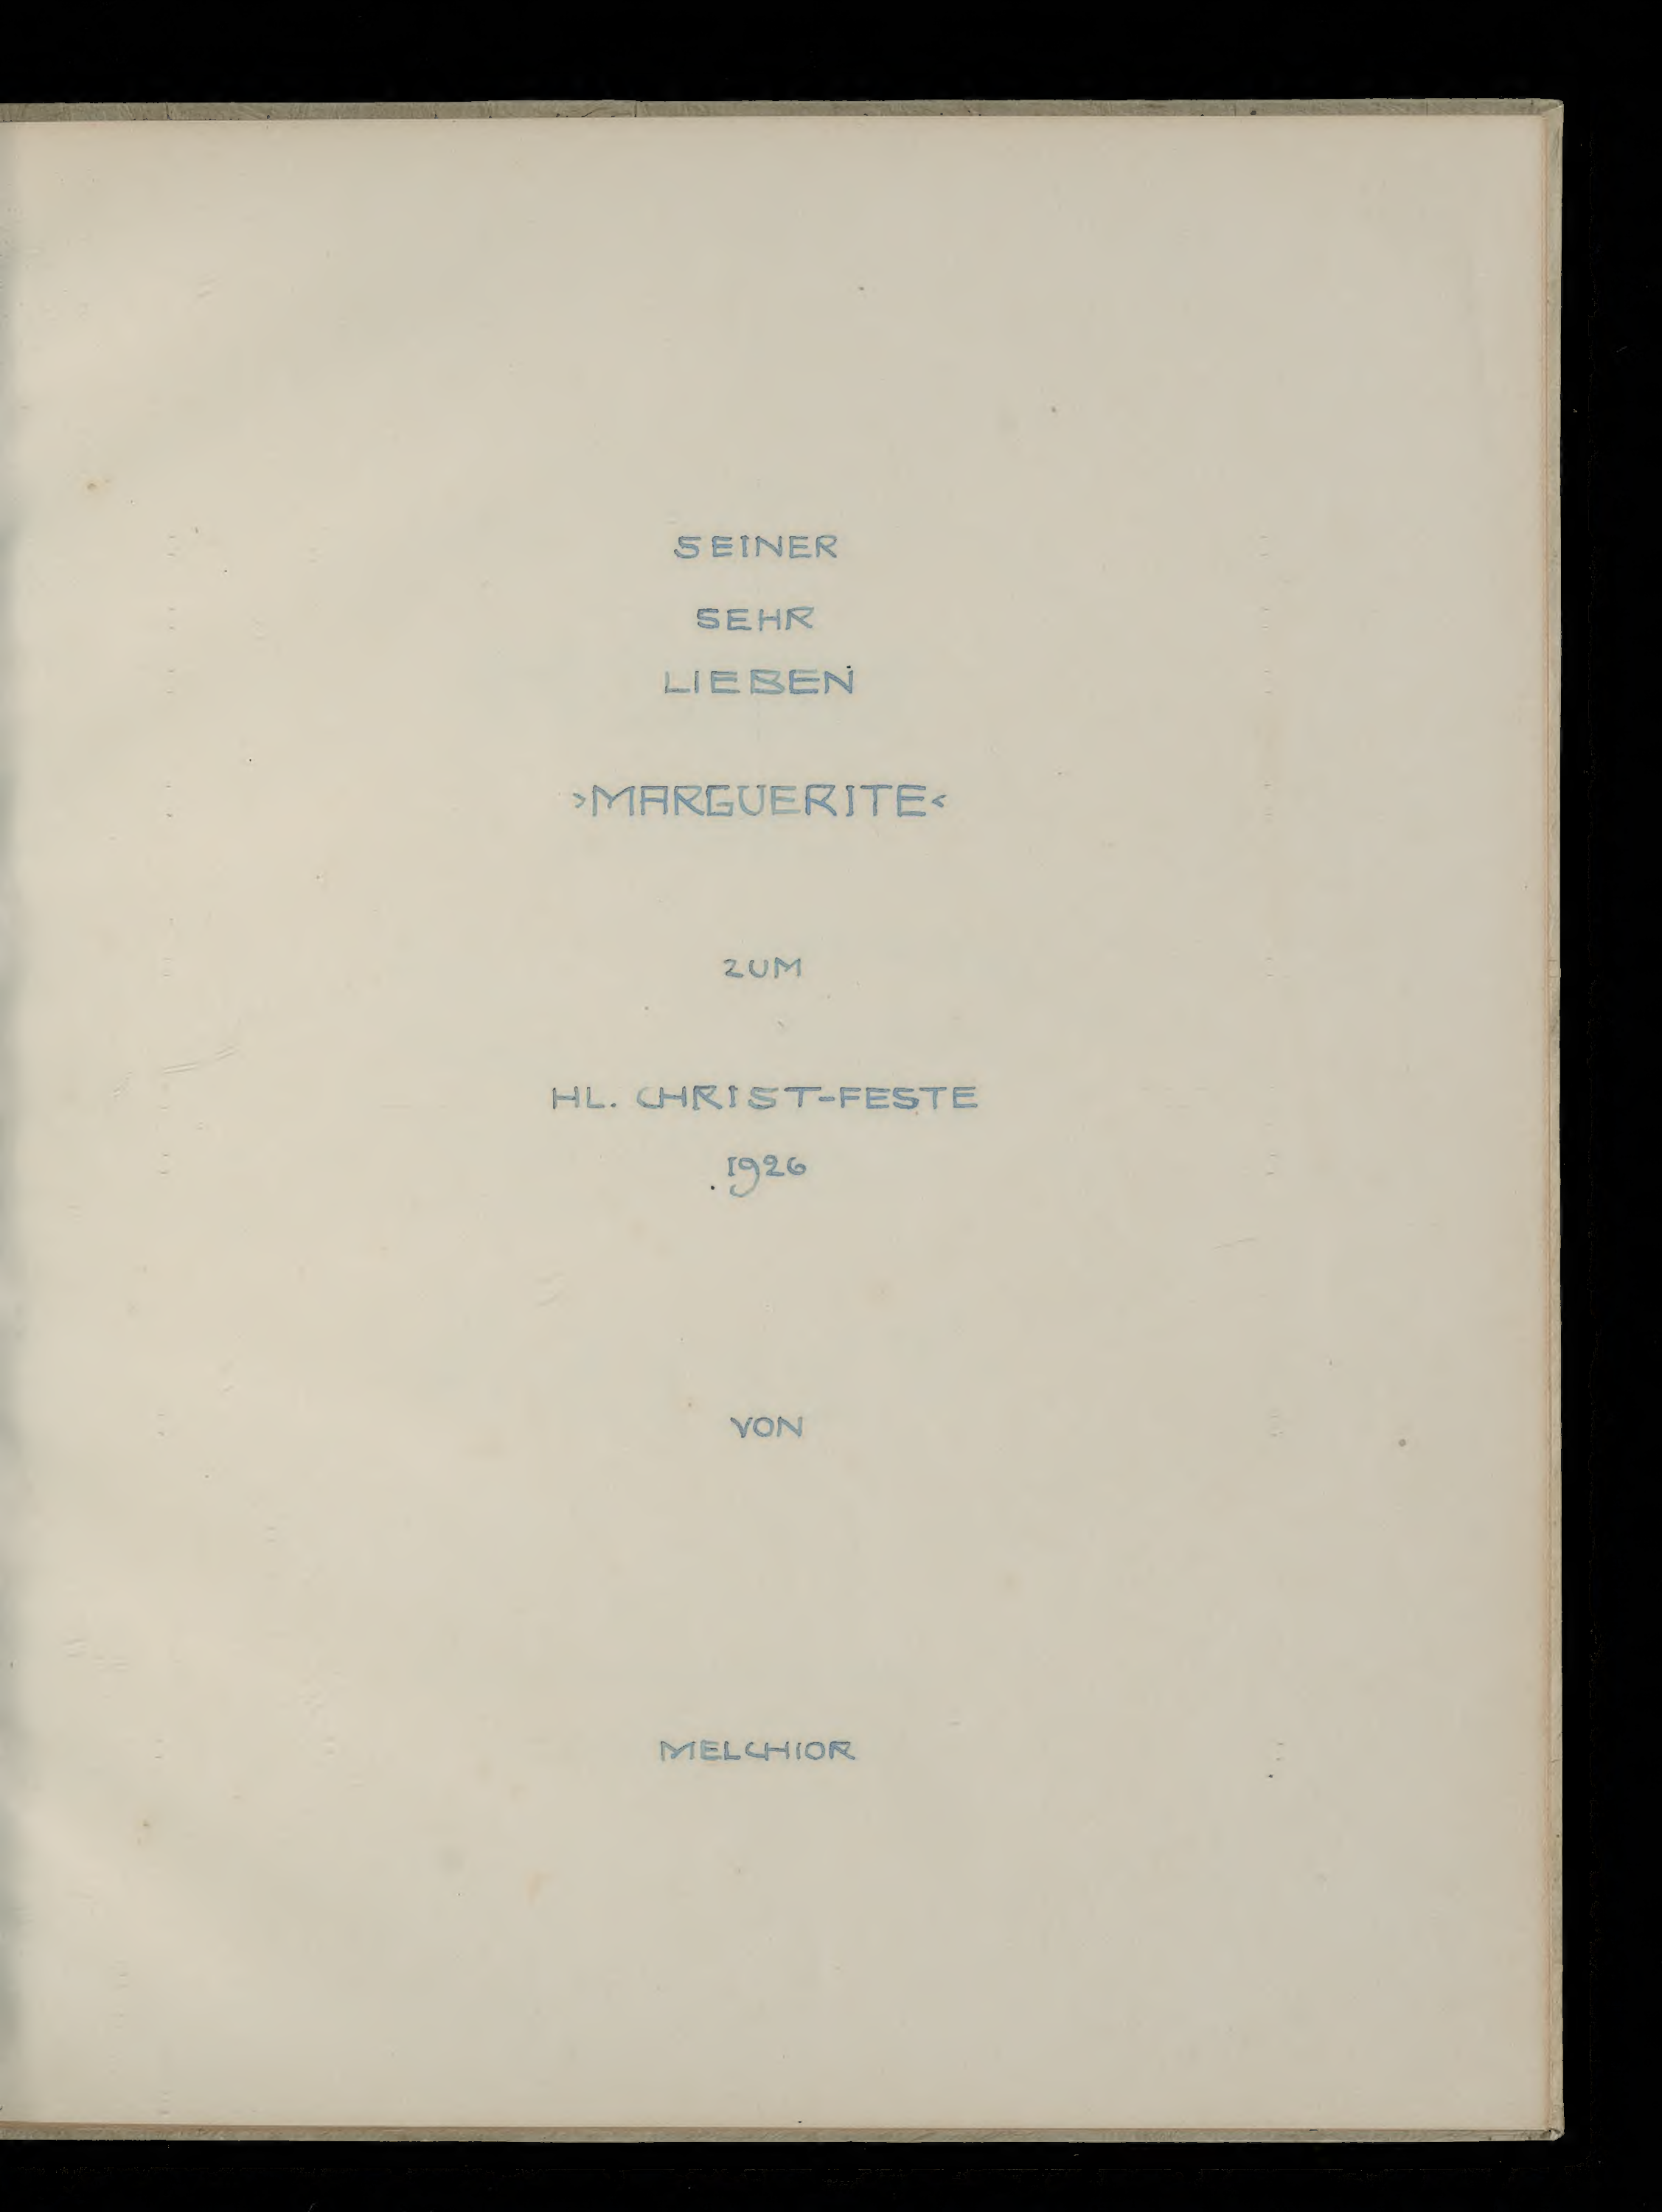 SEINER
SEHR
LIEBEN
›MARGUERITE‹
ZUM
HL. CHRIST-FESTE
1926
VON
MELCHIOR